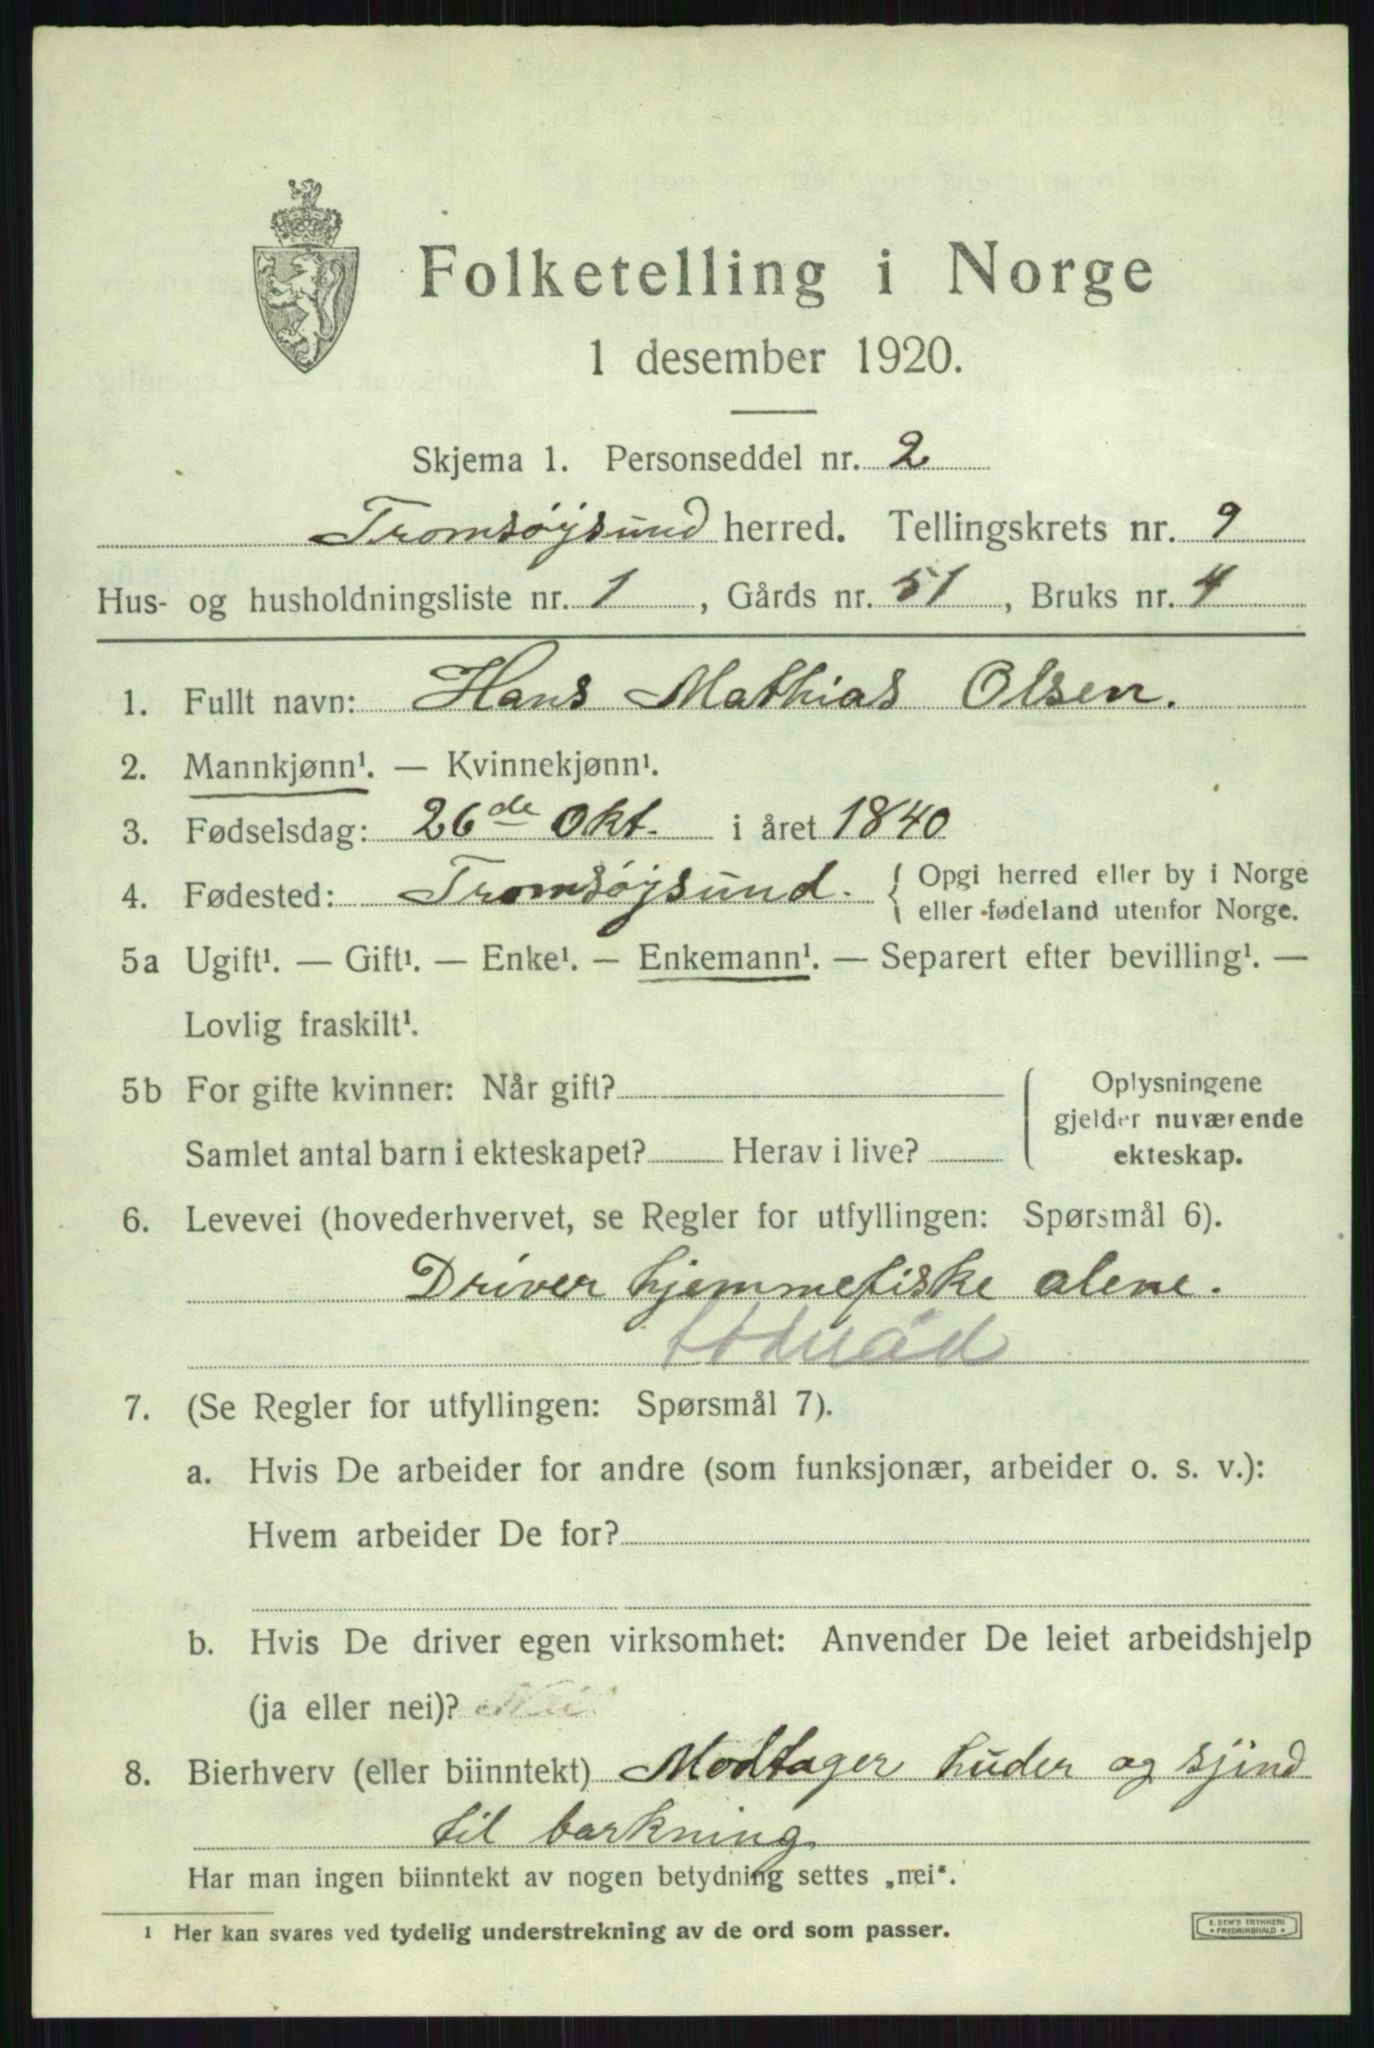 Folketelling i Norge
1 desember 1920.
Skjema 1. Personseddel nr. 2
Tromsøysund herred. Tellingskrets nr. 9
Hus- og husholdningsliste nr. 1, Gårds nr. 51, Bruks nr. 4
1. Fullt navn: Hans Mathias Olsen.
2. Mannkjønn¹. — Kvinnekjønn¹.
3. Fødselsdag: 26de Okt. i året 1840
4. Fødested: Tromsøysund. { Opgi herred eller by i Norge
eller fødeland utenfor Norge.
5a Ugift¹. — Gift¹. — Enke¹. — Enkemann¹. — Separert efter bevilling¹. —
Lovlig fraskilt¹.
5b For gifte kvinner: Når gift?
Samlet antal barn i ekteskapet? Herav i live?
Oplysningene
gjelder nuværende
ekteskap.
6. Levevei (hovederhvervet, se Regler for utfyllingen: Spørsmål 6).
Driver hjemmefiske alene.
7. (Se Regler for utfyllingen: Spørsmål 7).
a. Hvis De arbeider for andre (som funksjonær, arbeider o. s. v.):
Hvem arbeider De for?
b. Hvis De driver egen virksomhet: Anvender De leiet arbeidshjelp
(ja eller nei)? Nei
8. Bierhverv (eller biinntekt) Modtager huder og sjind
til barkning
Har man ingen biinntekt av nogen betydning settes „nei“.
¹ Her kan svares ved tydelig understrekning av de ord som passer.
E. SEM'S TRYKKERI
FREDRIKSHALD